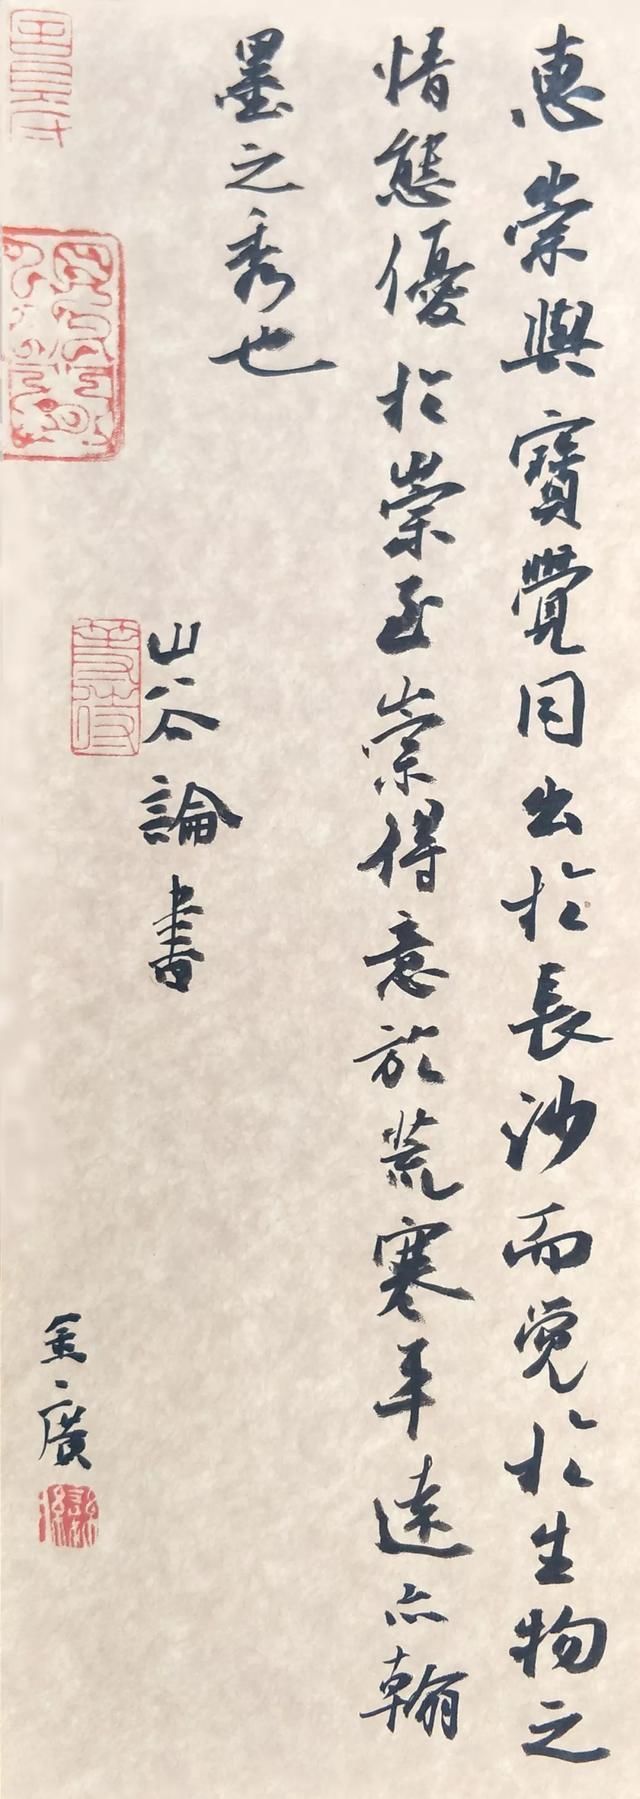 惠崇與寶覺同出於長沙而覺於生物之
情態優於崇至崇得意於荒寒平遠亦翰
墨之秀也
山谷論書
廣